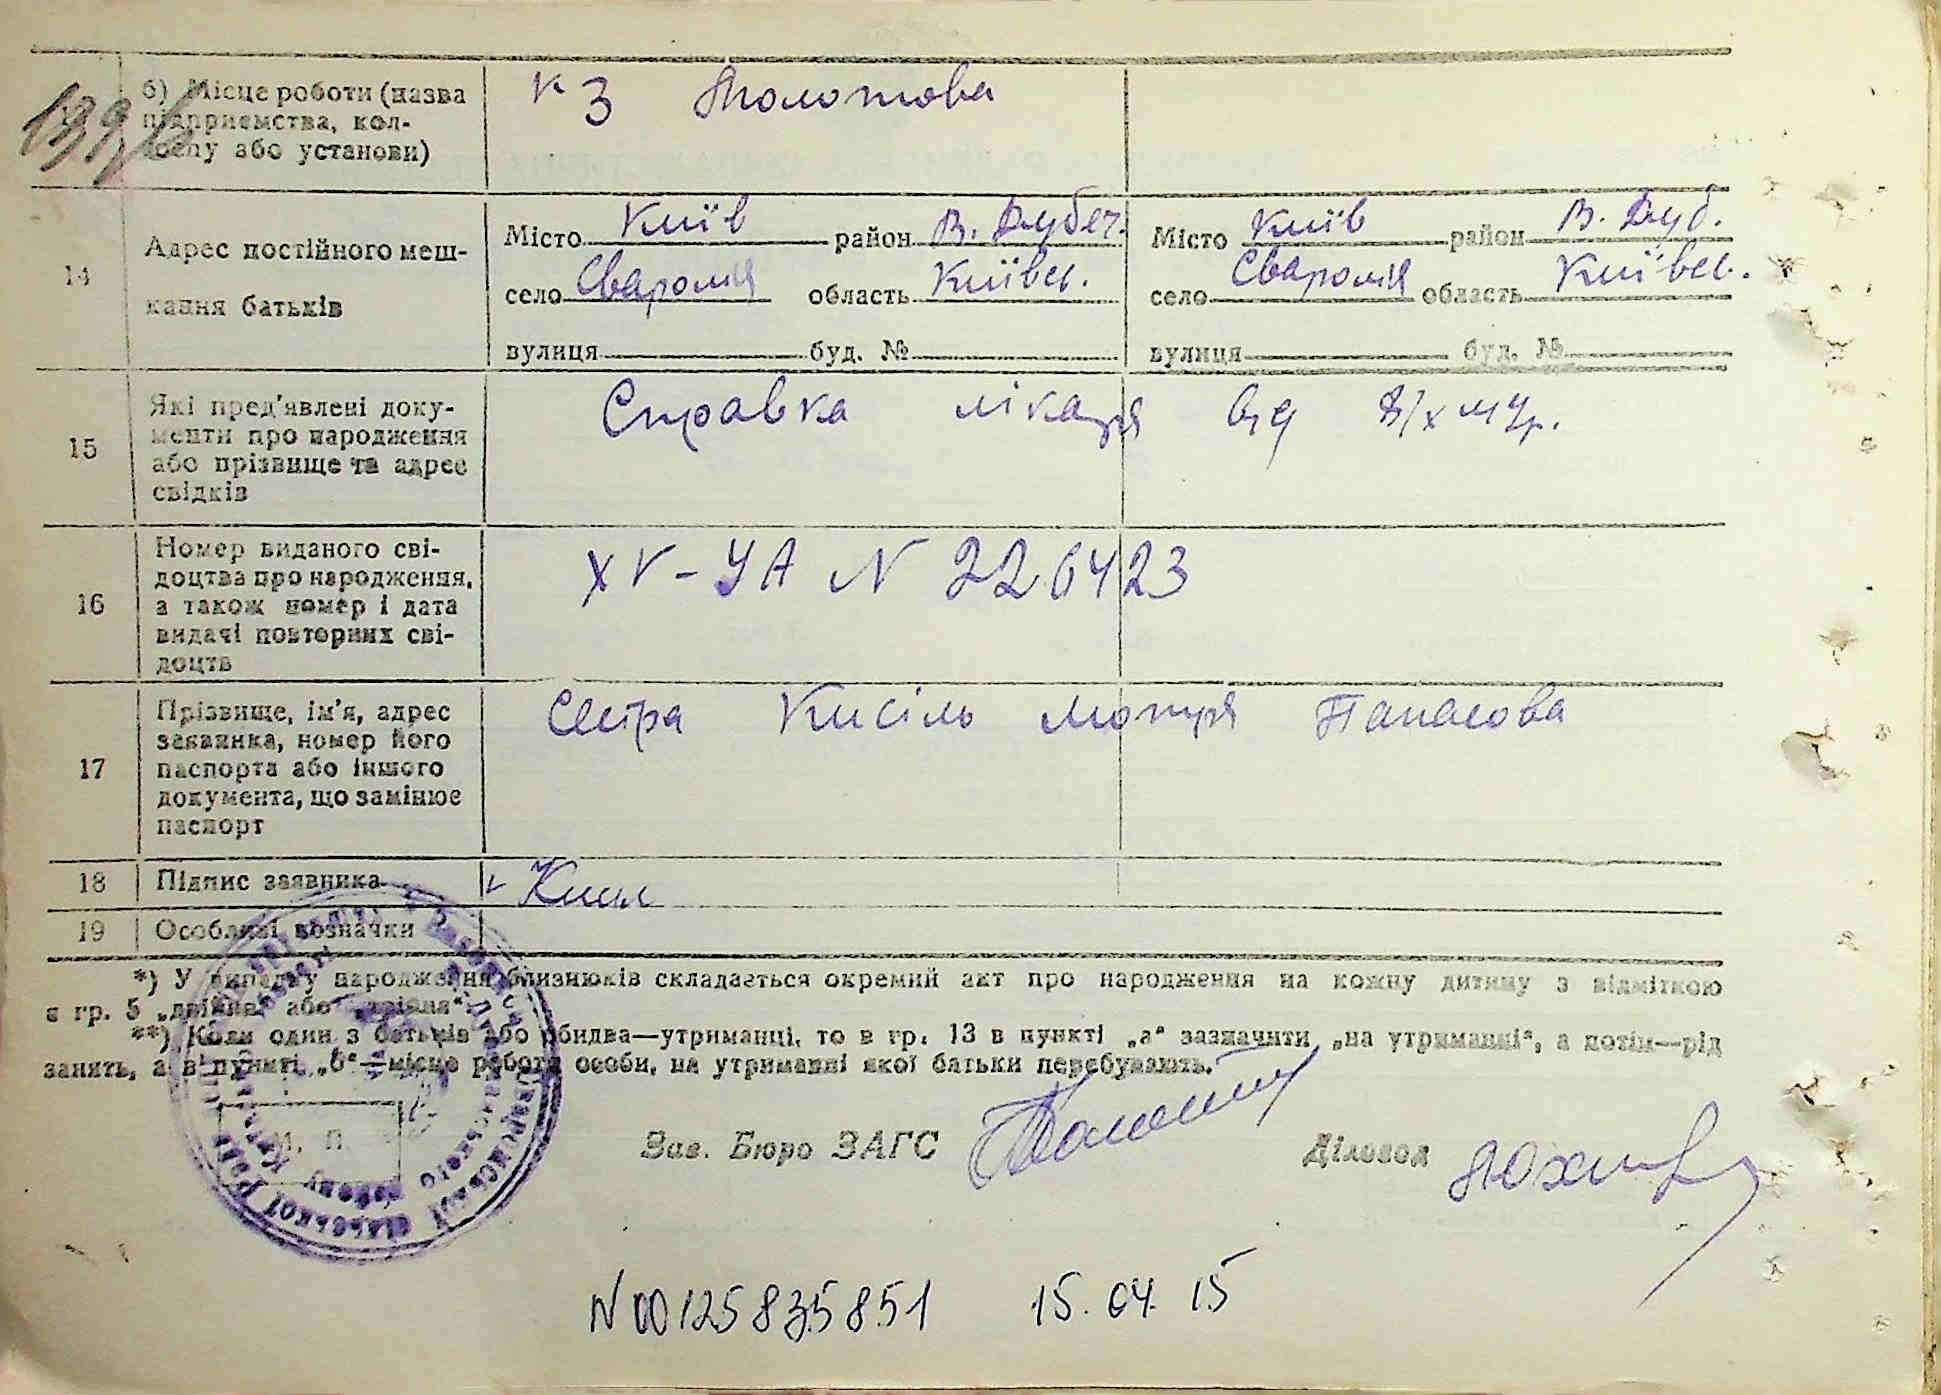 139
б) Місце роботи (назва
підприємства, кол-
госпу або установи)
к з Молотова
14
Адрес постійного меш-
кання батьків
Місто Київ район В. Дубеч.
село Сваромя область Київсь.
вулиця буд. №
Місто Київ район В. Дуб.
село Сваромя область Київсь.
вулиця буд. №
15
Які пред'явлені доку-
менти про народження
або прізвище та адрес
свідків
Справка лікаря від
16
Номер виданого сві-
доцтва про народження,
а також номер і дата
видачі повторних сві-
доцтв
XV-УА N 226423
17
Прізвище, ім'я, адрес
заявника, номер його
паспорта або іншого
документа, що замінює
паспорт
Сестра Кисіль Мотря Панасова
18
Підпис заявника
19
Особливі возначки
*) У випадку народження близнюків складається окремий акт про народження на кожну дитину з відміткою
в гр. 5 „двійня“ або „трійня“.
**) Коли один з батьків або обидва—утриманці, то в гр. 13 в пункті „а“ зазначити „на утриманні“, а потім—рід
занять, а в пункті „б“—місце роботи особи, на утриманні якої батьки перебувають.
М. П.
Зав. Бюро ЗАГС
Діловод
N00125835851 15.04.15